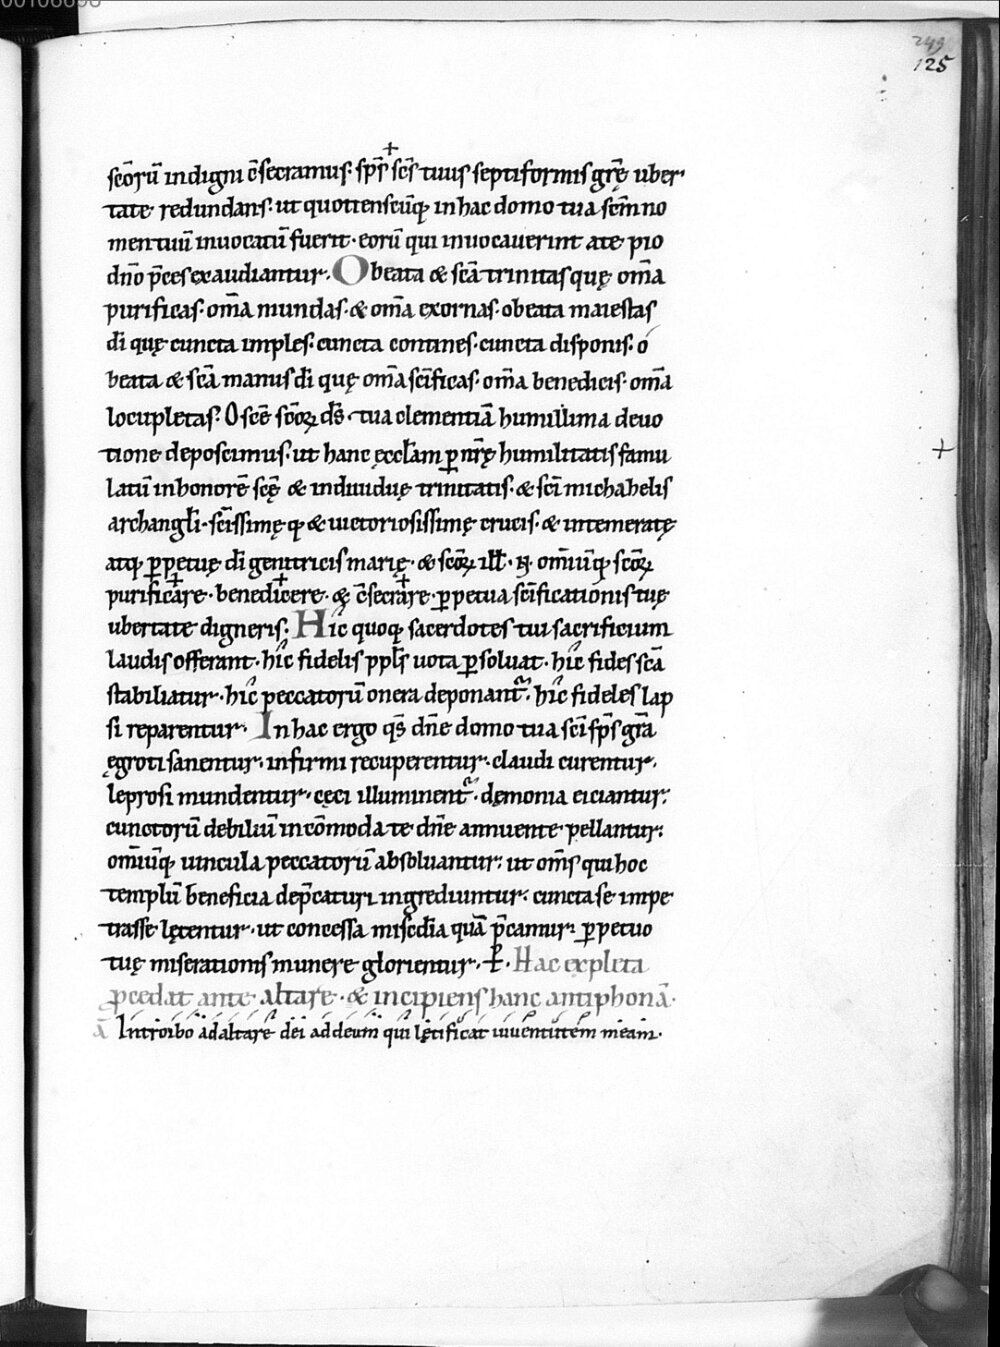 00106696
249
125
scōrū indigni c̄secramus· sp̄s̄ sc̄s tuus septiformis gr̄ę uber
tate redundans· ut quotienscūq; in hac domo tua sc̄m no
men tuū inuocatū fuerit· eorū qui inuocauerint a te pio
dn̄o p̄ces exaudiantur. O beata & sc̄a trinitas quę om̄a
purificas· om̄a mundas· & om̄a exornas· o beata maiestas
dī quę cuncta imples· cuncta contines· cuncta disponis· o
beata & sc̄a manus dī quę om̄a sc̄ificas· om̄a benedicis· om̄a
locupletas. O sc̄e sc̄oꝝ ds̄· tua clementiā humillima deuo
tione deposcimus· ut hanc ęccl̄am ꝑ nr̄ę humilitatis famu
latū in honorē sc̄ę & indiuiduę trinitatis· & sc̄i michahelis
archangl̄i· sc̄issimę q; & uictoriosissimę crucis· & intemeratę
atq; ꝑpetuę dī genitricis marię· & sc̄oꝝ ill̄· N̄· om̄iūq; sc̄oꝝ
purificare· benedicere· & c̄secrare· ꝑpetua sc̄ificationis tuę
ubertate digneris. Hic quoq; sacerdotes tui sacrificium
laudis offerant· hic fidelis ppl̄s uota ꝑsoluat· hic fides sc̄a
stabiliatur· hic peccatorū onera deponant᷑· hic fideles lap
si reparentur. In hac ergo qs̄ dn̄e domo tua sc̄i sp̄s gr̄a
ęgroti sanentur· infirmi recuperentur· claudi curentur·
leprosi mundentur· cęci illuminent᷑· dęmonia eiciantur·
cunctorū debiliū incōmoda te dn̄e annuente pellantur·
om̄iūq; uincula peccatorū absoluantur· ut om̄s qui hoc
templū beneficia dep̄caturi ingrediuntur· cuncta se impe
trasse lętentur· ut concessa mis̄cdīa quā p̄camur· ꝑpetuo
tuę miserationis munere glorientur· ꝑ· Hac expleta
ꝓcedat ante altare· & incipiens hanc antiphonā·
ā Introibo ad altare dei ad deum qui lętificat iuuentutem meam·